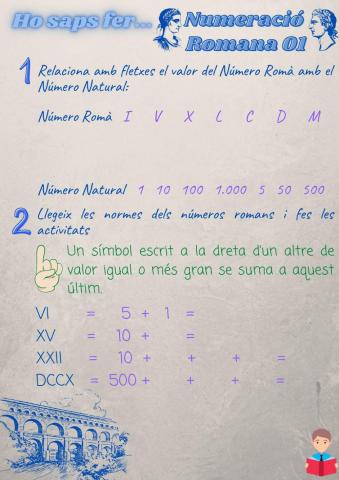 Ho saps fer...
Numeració
Romana 01
1 Relaciona amb fletxes el valor del Número Romà amb el
Número Natural:
Número Romà I V X L C D M
Número Natural 1 10 100 1.000 5 50 500
2 Llegeix les normes dels números romans i fes les
activitats
Un símbol escrit a la dreta d'un altre de
valor igual o més gran se suma a aquest
últim.
VI = 5 + 1 =
XV = 10 + =
XXII = 10 + + + =
DCCX = 500 + + + =